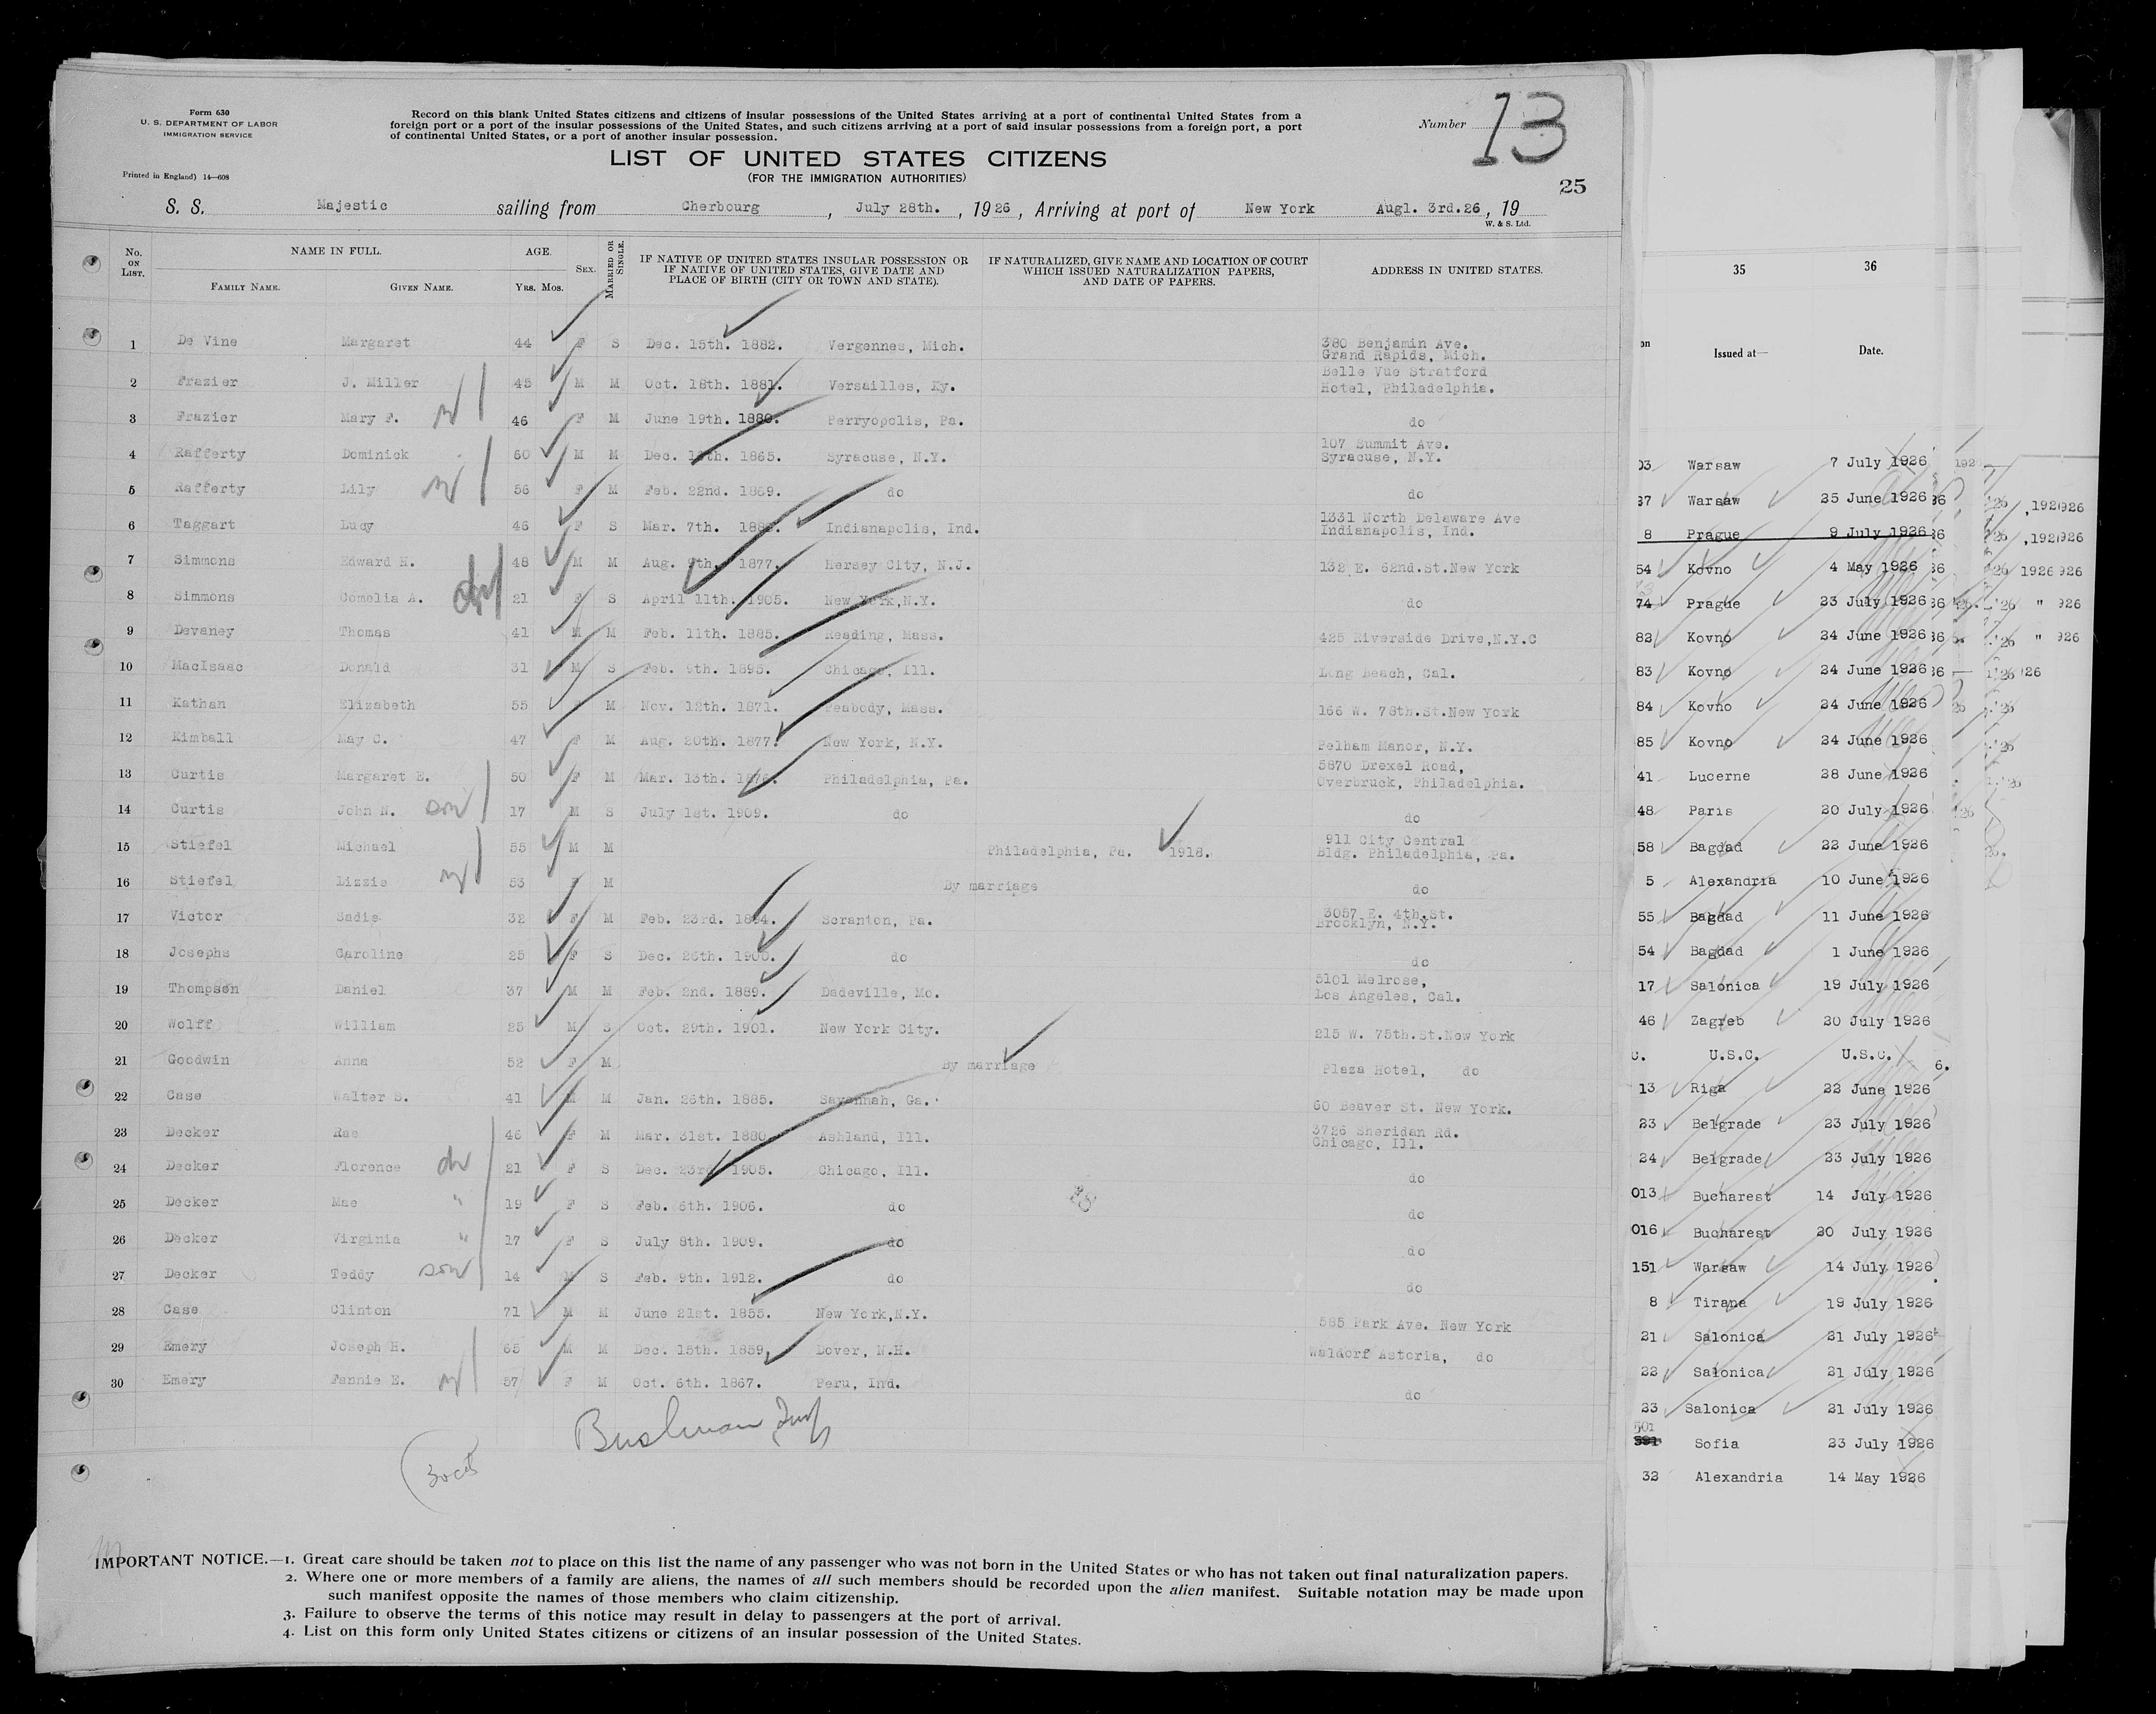 Form 630
U. S. DEPARTMENT OF LABOR
IMMIGRATION SERVICE
Printed in England) 14—608
Record on this blank United States citizens and citizens of insular possessions of the United States arriving at a port of continental United States from a
foreign port or a port of the insular possessions of the United States, and such citizens arriving at a port of said insular possessions from a foreign port, a port
of continental United States, or a port of another insular possession.
Number 13
LIST OF UNITED STATES CITIZENS
(FOR THE IMMIGRATION AUTHORITIES)
25
S. S. Majestic sailing from Cherbourg, July 28th., 1926, Arriving at port of New York Augl. 3rd.26, 19
W. & S. Ltd.
No. ON LIST. NAME IN FULL. AGE. SEX. MARRIED OR SINGLE. IF NATIVE OF UNITED STATES INSULAR POSSESSION OR IF NATIVE OF UNITED STATES, GIVE DATE AND PLACE OF BIRTH (CITY OR TOWN AND STATE). IF NATURALIZED, GIVE NAME AND LOCATION OF COURT WHICH ISSUED NATURALIZATION PAPERS, AND DATE OF PAPERS. ADDRESS IN UNITED STATES.
FAMILY NAME. GIVEN NAME. YRS. MOS.
1 De Vine Margaret 44 F S Dec. 15th. 1882. Vergennes, Mich. 380 Benjamin Ave. Grand Rapids, Mich.
2 Frazier J. Miller 45 M M Oct. 18th. 1881. Versailles, Ky. Belle Vue Stratford Hotel, Philadelphia.
3 Frazier Mary F. w 46 F M June 19th. 1880. Perryopolis, Pa. do
4 Rafferty Dominick 60 M M Dec. 1865. Syracuse, N.Y. 107 Summit Ave. Syracuse, N.Y.
5 Rafferty Lily w 56 F M Feb. 22nd. 1869. do do
6 Taggart Lucy 46 F S Mar. 7th. Indianapolis, Ind. 1331 North Delaware Ave Indianapolis, Ind.
7 Simmons Edward H. 48 M M Aug. 9th. 1877. Hersey City, N.J. 132 E. 62nd.St.New York
8 Simmons Comelia A. 21 F S April 11th. 1905. New York,N.Y. do
9 Devaney Thomas 41 M M Feb. 11th. 1885. Reading, Mass. 425 Riverside Drive,N.Y.C
10 MacIsaac Donald 31 M S Feb. 9th. 1895. Chicago, Ill. Long Beach, Cal.
11 Kathan Elizabeth 55 M Nov. 12th. 1871. Peabody, Mass. 166 W. 78th.St.New York
12 Kimball May C. 47 F M Aug. 20th. 1877. New York, N.Y. Pelham Manor, N.Y.
13 Curtis Margaret E. 50 F M Mar. 13th. 1876. Philadelphia, Pa. 5870 Drexel Road, Overbruck, Philadelphia.
14 Curtis John N. son 17 M S July 1st. 1909. do do
15 Stiefel Michael 55 M M Philadelphia, Pa. 1918. 911 City Central Bldg. Philadelphia, Pa.
16 Stiefel Lizzie w 53 F M By marriage do
17 Victor Sadie 32 F M Feb. 23rd. 1894. Scranton, Pa. 3057 E. 4th.St. Brooklyn, N.Y.
18 Josephs Caroline 25 F S Dec. 26th. 1900. do do
19 Thompson Daniel 37 M M Feb. 2nd. 1889. Dadeville, Mo. 5101 Melrose, Los Angeles, Cal.
20 Wolff William 25 M S Oct. 29th. 1901. New York City. 215 W. 75th.St.New York
21 Goodwin Anna 52 F M By marriage Plaza Hotel, do
22 Case Walter S. 41 M M Jan. 26th. 1885. Savannah, Ga. 60 Beaver St. New York.
23 Decker Rae 46 F M Mar. 31st. 1880 Ashland, Ill. 3726 Sheridan Rd. Chicago, Ill.
24 Decker Florence 21 F S Dec. 23rd 1905. Chicago, Ill. do
25 Decker Mae " 19 F S Feb. 6th. 1906. do do
26 Decker Virginia " 17 F S July 8th. 1909. do do
27 Decker Teddy son 14 M S Feb. 9th. 1912. do do
28 Case Clinton 71 M M June 21st. 1855. New York,N.Y. 585 Park Ave. New York
29 Emery Joseph H. 65 M M Dec. 15th. 1859. Dover, N.H. Waldorf Astoria, do
30 Emery Fannie E. w 57 F M Oct. 6th. 1867. Peru, Ind. do
IMPORTANT NOTICE.—1. Great care should be taken not to place on this list the name of any passenger who was not born in the United States or who has not taken out final naturalization papers.
2. Where one or more members of a family are aliens, the names of all such members should be recorded upon the alien manifest. Suitable notation may be made upon
such manifest opposite the names of those members who claim citizenship.
3. Failure to observe the terms of this notice may result in delay to passengers at the port of arrival.
4. List on this form only United States citizens or citizens of an insular possession of the United States.
35 36
on Issued at— Date.
03 Warsaw 7 July 1926
37 Warsaw 25 June 1926
8 Prague 9 July 1926
54 Kovno 4 May 1926
74 Prague 23 July 1926
82 Kovno 24 June 1926
83 Kovno 24 June 1926
84 Kovno 24 June 1926
85 Kovno 24 June 1926
41 Lucerne 28 June 1926
48 Paris 20 July 1926
58 Bagdad 22 June 1926
5 Alexandria 10 June 1926
55 Bagdad 11 June 1926
54 Bagdad 1 June 1926
17 Salonica 19 July 1926
46 Zagreb 20 July 1926
C. U.S.C. U.S.C. 6.
13 Riga 22 June 1926
23 Belgrade 23 July 1926
24 Belgrade 23 July 1926
013 Bucharest 14 July 1926
016 Bucharest 20 July 1926
151 Warsaw 14 July 1926
8 Tirana 19 July 1926
21 Salonica 21 July 1926
22 Salonica 21 July 1926
23 Salonica 21 July 1926
Sofia 23 July 1926
32 Alexandria 14 May 1926